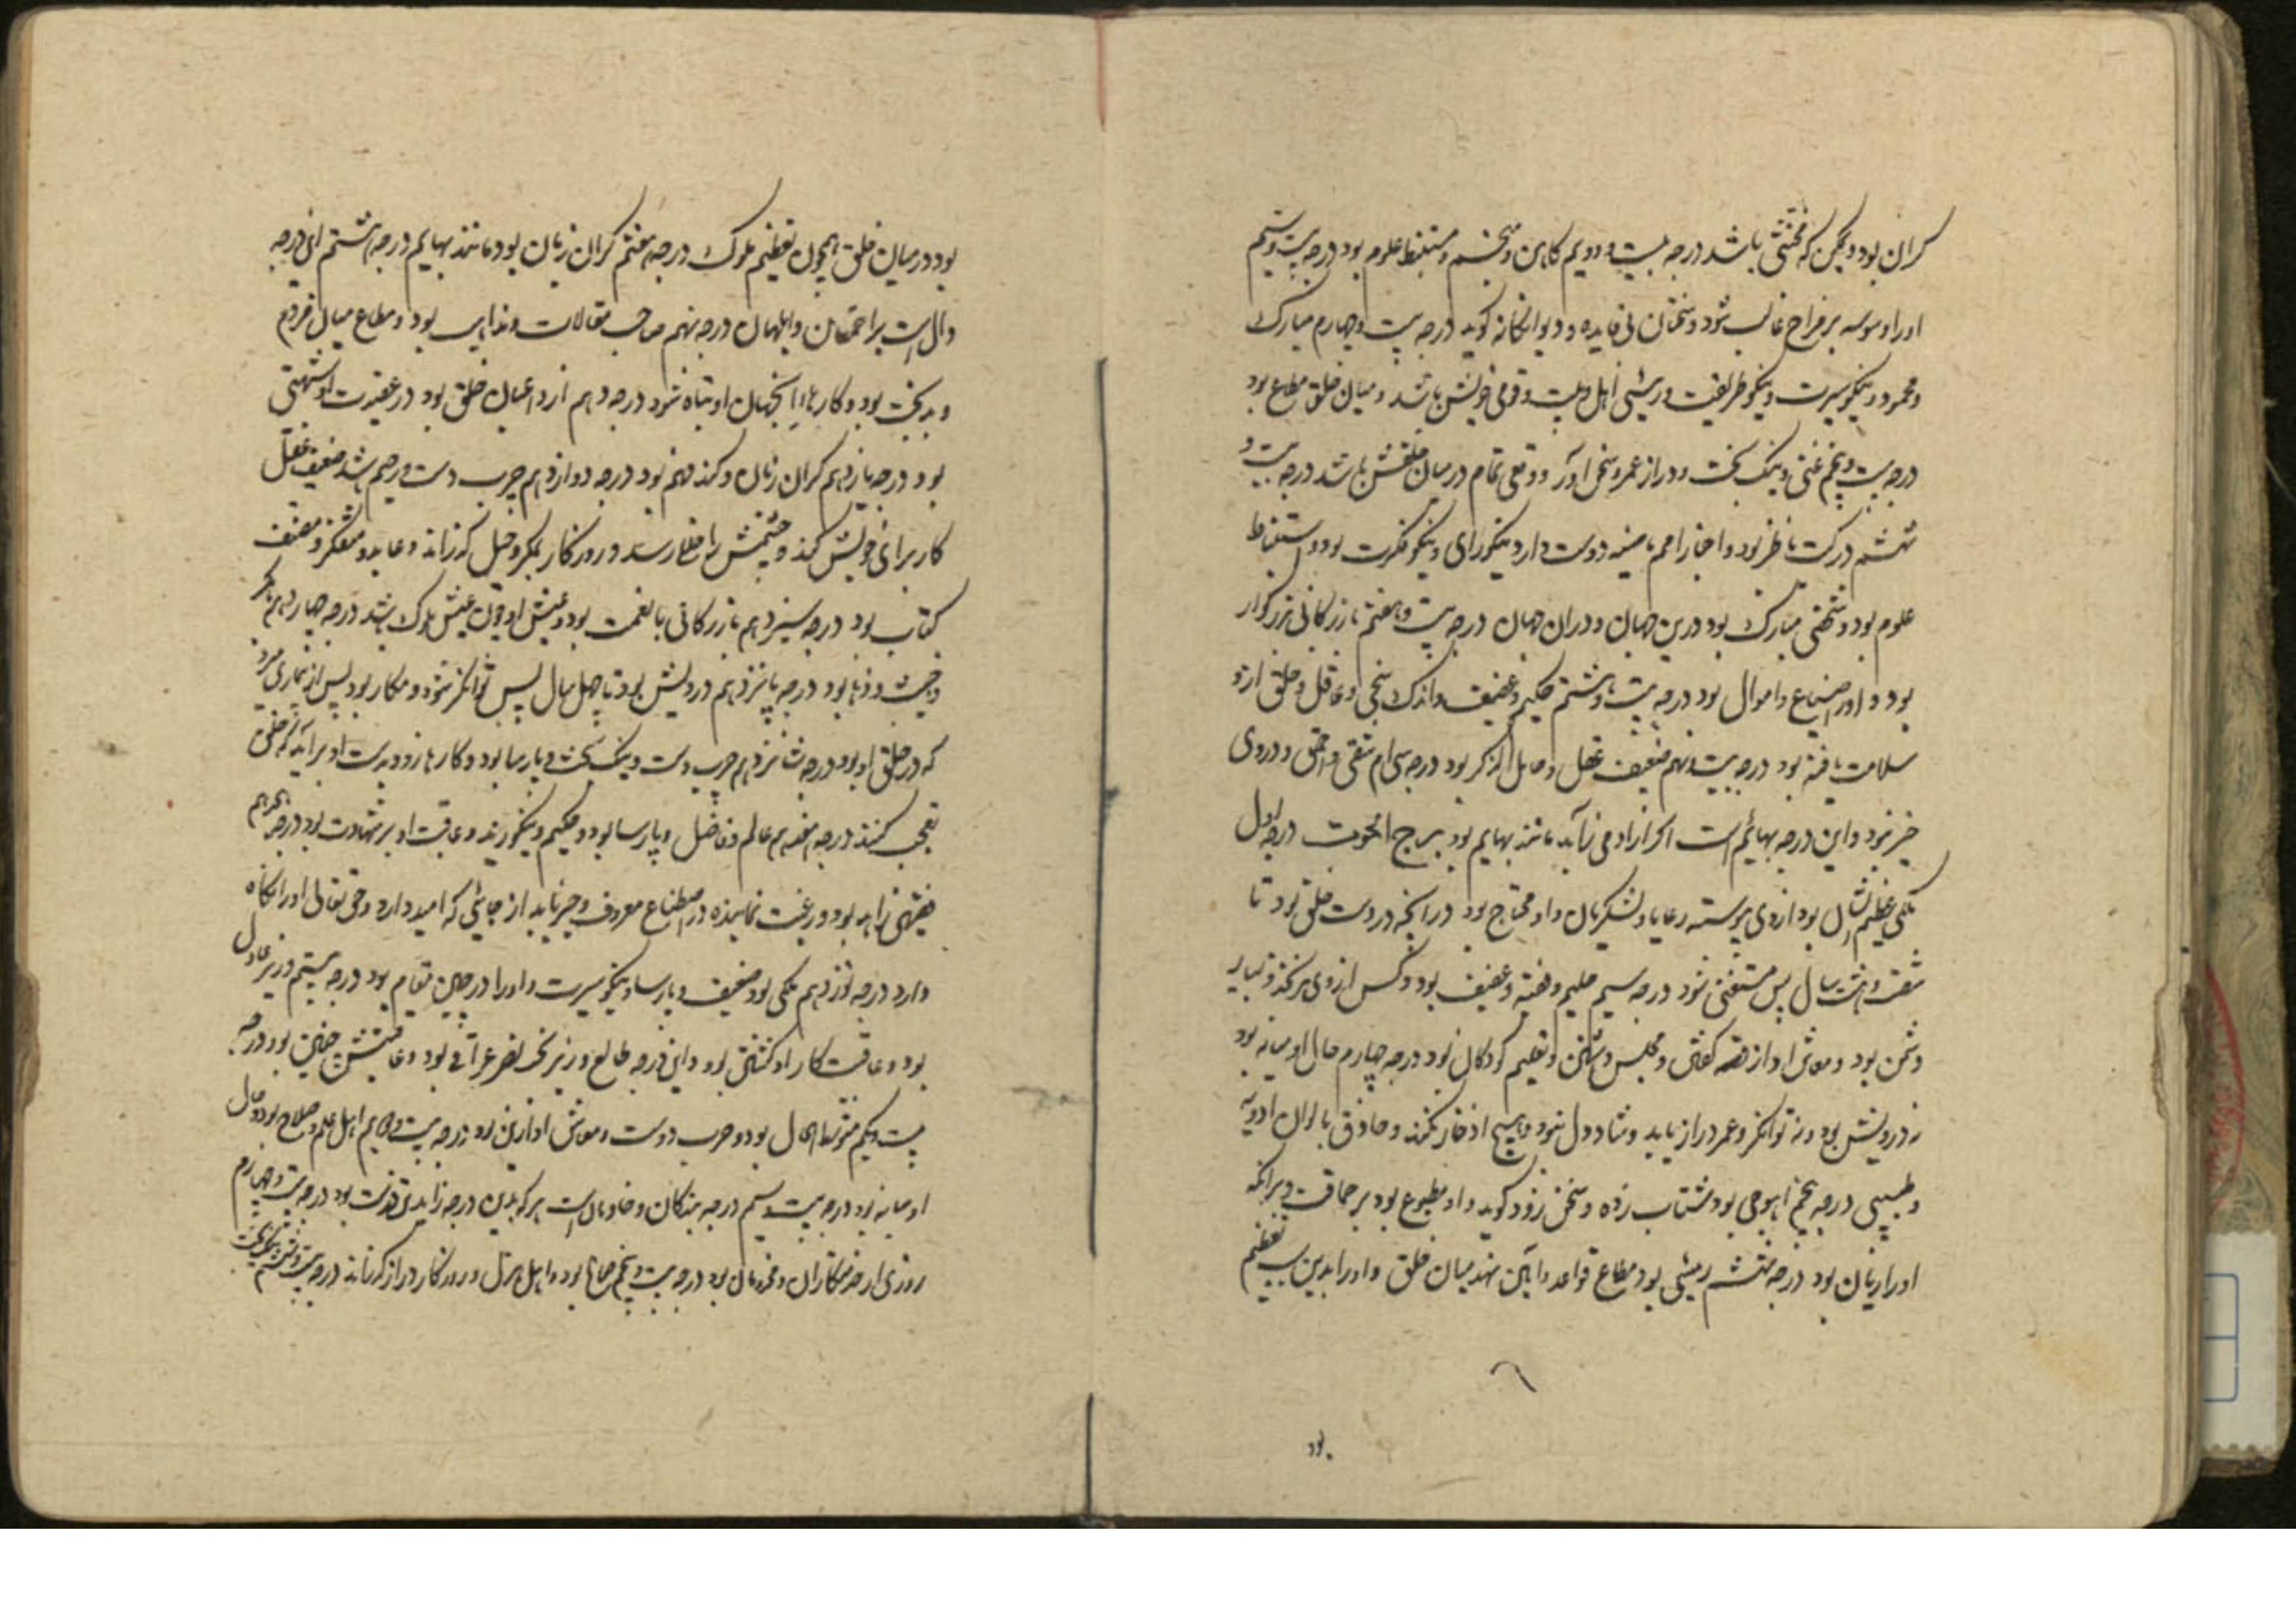 کران بود و ممکن که مخنثی باشد درجه بیست و دویم کاهن و منجم و مستنبط علوم بود درجه بیست و سیم
او را وسوسه بر مزاج غالب شود و سخنان بی فایده و دیوانکانه کوید درجه بیست و چهارم مبارک
و محمود و نیکو سیرت و نیکو طریقت و رئیس اهل و قوم خویش باشد و میان خلق مطاع بود
درجه بیست و پنجم غنی و نیک بخت و دراز عمر و سخن آور و وقعی تمام در میان خلقش باشد درجه بیست و
ششم در کتب ناظر بود و اخبار امم ماضیه دوست دارد نیکو رای و نیکو فکرت بود و استنباط
علوم بود و شخصی مبارک بود درین جهان و دران جهان درجه بیست و هفتم بازرکانی بزرکوار
بود و او را ضیاع و اموال بود درجه بیست و هشتم حکیم و عفیف و اندک سخن و عاقل و خلق ازو
سلامت یافته بود درجه بیست و نهم ضعیف عقل و خامل الذکر بود درجه سی ام شقی و احمق و در وی
خیر نبود و این درجه بهائم است اکر آزاد می زاید مانند بهایم بود برج الحوت درجه اول
ملکی عظیم الشان بود از وی پیوسته رعایا و لشکریان و او محتاج بود در آنچه در دست خلق بود تا
شصت و هشت سال پس مستغنی شود درجه سیم حلیم و عفیف بود و کس از وی
دشمن بود و معاش او از قصه کفتن و مجلس داشتن و تعلیم کودکان بود درجه چهارم حال او میانه بود
نه درویش بود و نه توانکر و عمر دراز یابد و شاد دل بود و هیچ ادخار نکند و حاذق بالوان ادویه
و طبیبی درجه پنجم بود شتاب زده و سخن زود کوید و او مطبوع بود بر حماقت و برانکه
او را زیان بود درجه ششم رئیسی بود مطاع قواعد و آیین نهد میان خلق و او را بدین سبب تعظیم
بود
بود در میان خلق همچون تعظیم ملوک درجه هفتم کران زبان بود مانند بهایم درجه هشتم این درجه
دال است بر احمقان و ابلهان درجه نهم صاحب مقالات و مذاهب بود و مطاع میان
و بدبخت بود و کارهاء او تباه شود درجه دهم از اعیان خلق بود در عقیدت او شبهتی
بود درجه یازدهم کران زبان و کند فهم بود درجه دوازدهم چرب دست و رحیم باشد ضعیف عقل
کار برای خویش کند و چشمش را خللی رسد و روزکار بمکر و حیل کذراند و عابد و متفکر و مصنف
کتاب بود درجه سیزدهم بازرکانی با نعمت بود و عیش او چون عیش ملوک باشد درجه چهاردهم
و خبیث و بود درجه پانزدهم درویش بود تا چهل سال پس توانکر شود و مکار بود پس از بیماری میرد
که در حلق او بود درجه شانزدهم چرب دست و نیک بخت و پارسا بود و کارها زود بدست او برآید که خلق
تعجب کنند درجه هفدهم عالم و فاضل و پارسا بود و حکیم و نیکو و عاقبت او بر شهادت بود درجه هجدهم
فقیهی زاهد بود و رغبت نماینده در اصطناع معروف و خیر یابد از جایی که امید دارد و حق تعالی او را نکاه
دارد درجه نوزدهم ملکی بود ضعیف و پارسا و نیکو سیرت و او را در مقام بود درجه بیستم وزیر عادل
بود و عاقبت کار او کشتن بود و این درجه طالع وزیر بود و عاقبتش چنین بود درجه
بیست و یکم متوسط الحال بود و حرب دوست و معاش او ازین بود درجه بیست و دویم اهل علم و صلاح بود و حال
او میانه بود درجه بیست و سیم درجه بندکان و خادمان است هر که بدین درجه زاید بود درجه بیست و چهارم
روزی از خدمتکاران و مزدوران بود درجه بیست و پنجم بود و اهل هزل و روزکار دراز کذراند درجه بیست و ششم نیک بخت